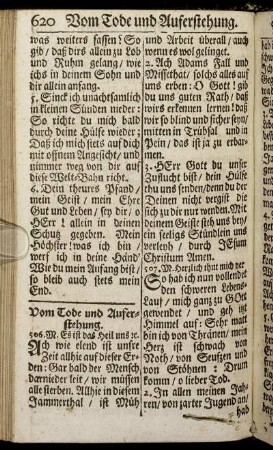 620 Vom Tode und Auferstehung.
was weiters fassen! So
gib/ daß dirs allein zu Lob
und Ruhm gelang/ wie
ichs in deinem Sohn und
dir allein anfang.
5. Sinck ich unachtsamlich
in kleinen Sünden nieder:
So richte du mich bald
durch deine Hülfe wieder;
Daß ich mich stets auf dich
mit offnem Angesicht/ und
nimmer weg von dir auf
diese Welt-Bahn richt.
6. Dein theures Pfand/
mein Geist/ mein Ehre
Gut und Leben/ sey dir/ o
HErr! allein in deinen
Schutz gegeben. Mein
Höchster! was ich bin/
werf ich in deine Händ/
Wie du mein Anfang bist/
so bleib auch stets mein
End.
Vom Tode und Aufer-
stehung.
506. M. Es ist das Heil uns ꝛc.
Ach wie elend ist unsre
Zeit allhie auf dieser Er-
den: Gar bald der Mensch
darnieder leit/ wir müssen
alle sterben. Allhie in diesem
Jammerthal/ ist Müh
und Arbeit überall/ auch
wenn es wol gelinget.
2. Ach Adams Fall und
Missethat/ solchs alles auf
uns erben: O Gott! gib
du uns guten Rath/ daß
wirs erkennen lernen! daß
wir so blind und sicher seyn/
mitten in Trübsal und in
Pein/ das ist ja zu erbar-
men.
3. HErr Gott du unser
Zuflucht bist/ dein Hülfe
thu uns senden/ denn du der
Deinen nicht vergißt die
sich zu dir nur wenden. Mit
deinem Geiste steh uns bey/
ein seeligs Stündlein uns
verleyh/ durch JEsum
Christum Amen.
507. M. Herzlich thut mich ꝛc
So hab ich nun vollendet
den schweren Lebens-
Lauf/ mich ganz zu GOtt
gewendet/ und geh itzt
Himmel auf: Sehr matt
bin ich von Thränen/ mein
Herz ist schwach von
Noth/ von Seufzen und
von Stöhnen: Drum
komm/ o lieber Tod.
2. In allen meinen Jah-
ren/ von zarter Jugend an/
hab